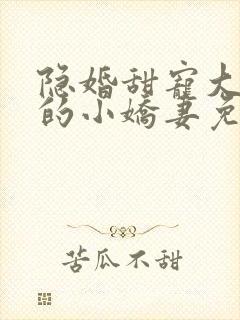 隐婚甜宠大
的小娇妻免
苦瓜不甜